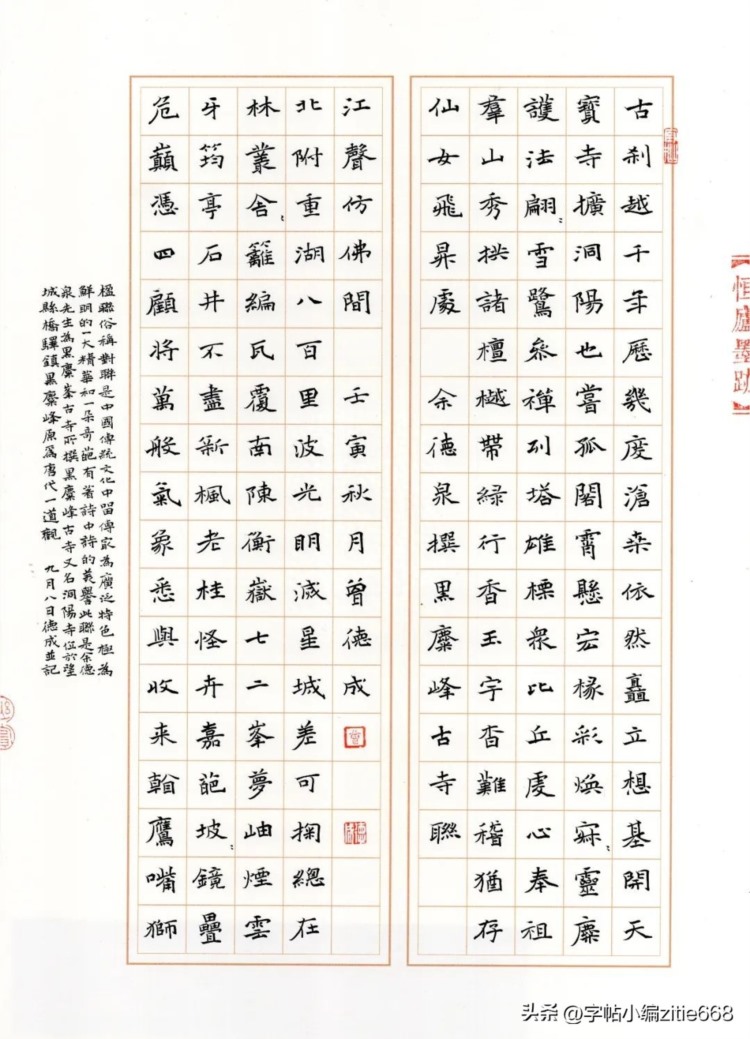 恒廬墨跡
古刹越千年歷幾度滄桑依然矗立想基開天
寶寺擴洞陽也嘗孤閣霄懸宏椽彩煥寐〻靈麋
護法翩〻雪鷺參禪列塔雄標衆比丘虔心奉祖
羣山秀拱諸檀樾帶綠行香玉宇杳難稽猶存
仙女飛昇處 余德泉撰黑麋峰古寺聯
危巔憑四顧將萬般氣象悉與收来翰鷹嘴獅
牙筠亭石井不盡新楓老桂怪卉嘉葩坡〻鏡疊
林叢舍〻籬編瓦覆南陳衡嶽七二峯夢岫煙雲
北附重湖八百里波光明滅星城差可掬總在
江聲仿佛間 壬寅秋月曾德成
楹聯俗稱對聯是中國傳統文化中留傳最為廣泛特色極為
鮮明的一大精華和一朵奇葩有着詩中詩的美譽此聯是余德
泉先生為黑麋峯古寺所撰黑麋峰古寺又名洞陽寺位於望
城縣橋驛鎮黑麋峰原為唐代一道觀 九月八日德成並記
头条 @字帖小编zitie668